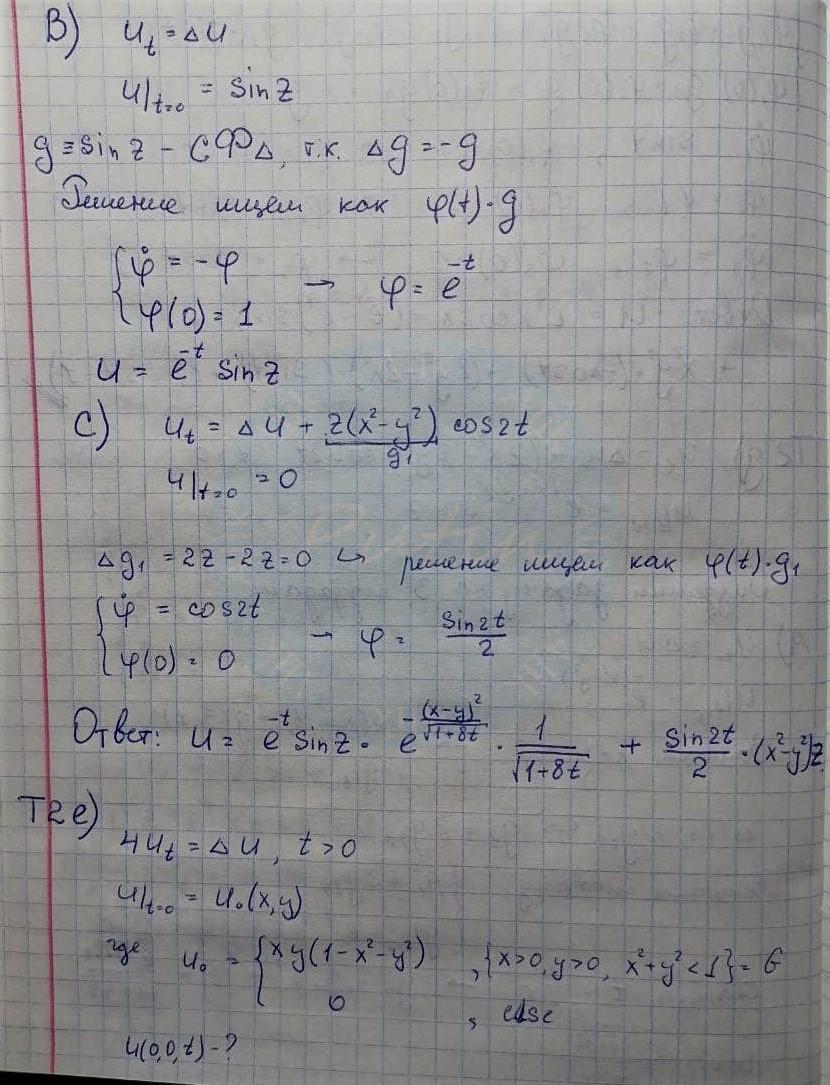 В) u_t = Δu
u|_{t=0} = sin z
g ≡ sin z - СФ_Δ, т.к. Δg = -g
Решение ищем как φ(t)·g
{ φ̇ = -φ
φ(0) = 1 → φ = e^{-t}
u = e^{-t} sin z
С) u_t = Δu + z(x²-y²) cos2t
g₁
u|_{t=0} = 0
Δg₁ = 2z - 2z = 0 ↪ решение ищем как φ(t)·g₁
{ φ̇ = cos2t
φ(0) = 0 → φ = sin2t/2
Ответ: u = e^{-t} sin z · e^{-(x-y)²/√(1+8t)} · 1/√(1+8t) + sin2t/2 · (x²-y²)z
Т2е)
4u_t = Δu, t > 0
u|_{t=0} = u₀(x,y)
где u₀ = { xy(1-x²-y²) , {x>0, y>0, x²+y²<1} = G
0 , else
u(0,0,t) - ?